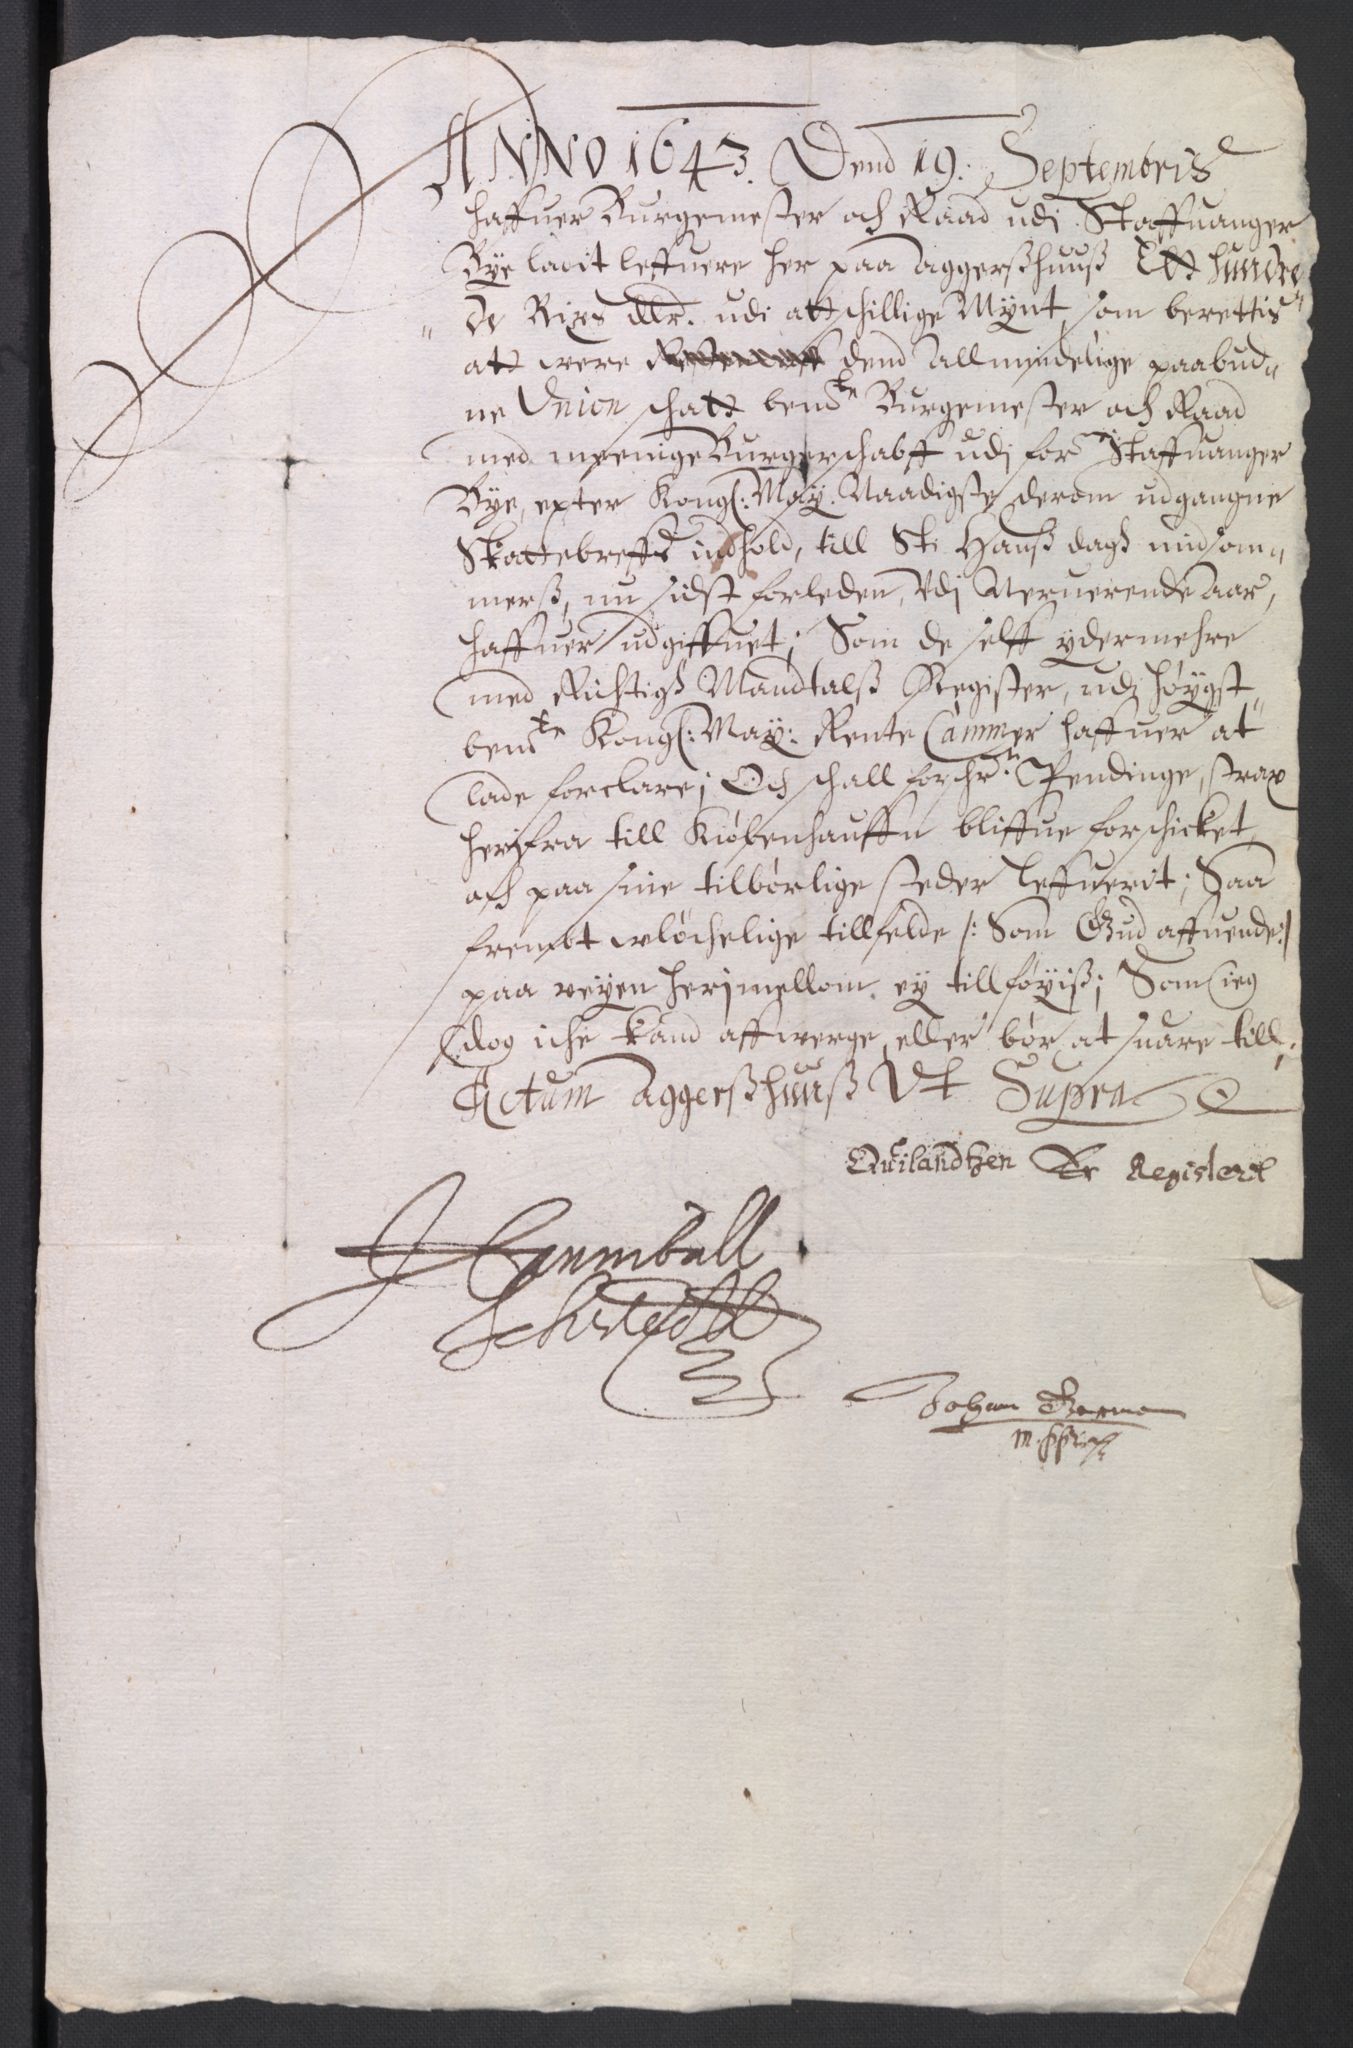 ANNO 1643. Dend 19. Septembris
haffuer Burgemester och Raad udi Staffuanger
Bye ladit leffuere her paa Aggerßhuuß Ett hundre
de Rixs dlr. udi attschillige Mÿnt, som berettis
att were dend Allmindelige paabud„
ne Union schatt bemte Burgemester och Raad
med meenige Burgerschabff udj for Staffuanger
Bye, epter Kongl: Maÿ. Naadigste derom udgangne
Skattebreffs indhold, till St: Hanß dagß midsom„
merß, nu sidst forleden, Udj Neruerende Aar,
haffuer udgiffuet; Som de self ydermehre
med Richtigß Mandtalß Register, udj høÿgst„
bemte Kongl: Maÿ: Rente Cammer haffuer at
lade forclare; Och schall forschr:ne Pendinge, strax
herifra till Kiøbenhauffn bliffue forschicket,
och paa sine tilbørlige steder leffuerit; Saa
frembt wlöchelige tillfelde /: Som Gud affuende :/
paa veyen herimellom ey tillföÿiß; Som ieg
dog iche kand affwerge, eller bör at suare till;
Actum Aggerßhuuß Ut Supra
Er Registerit
Johan
m. ppria